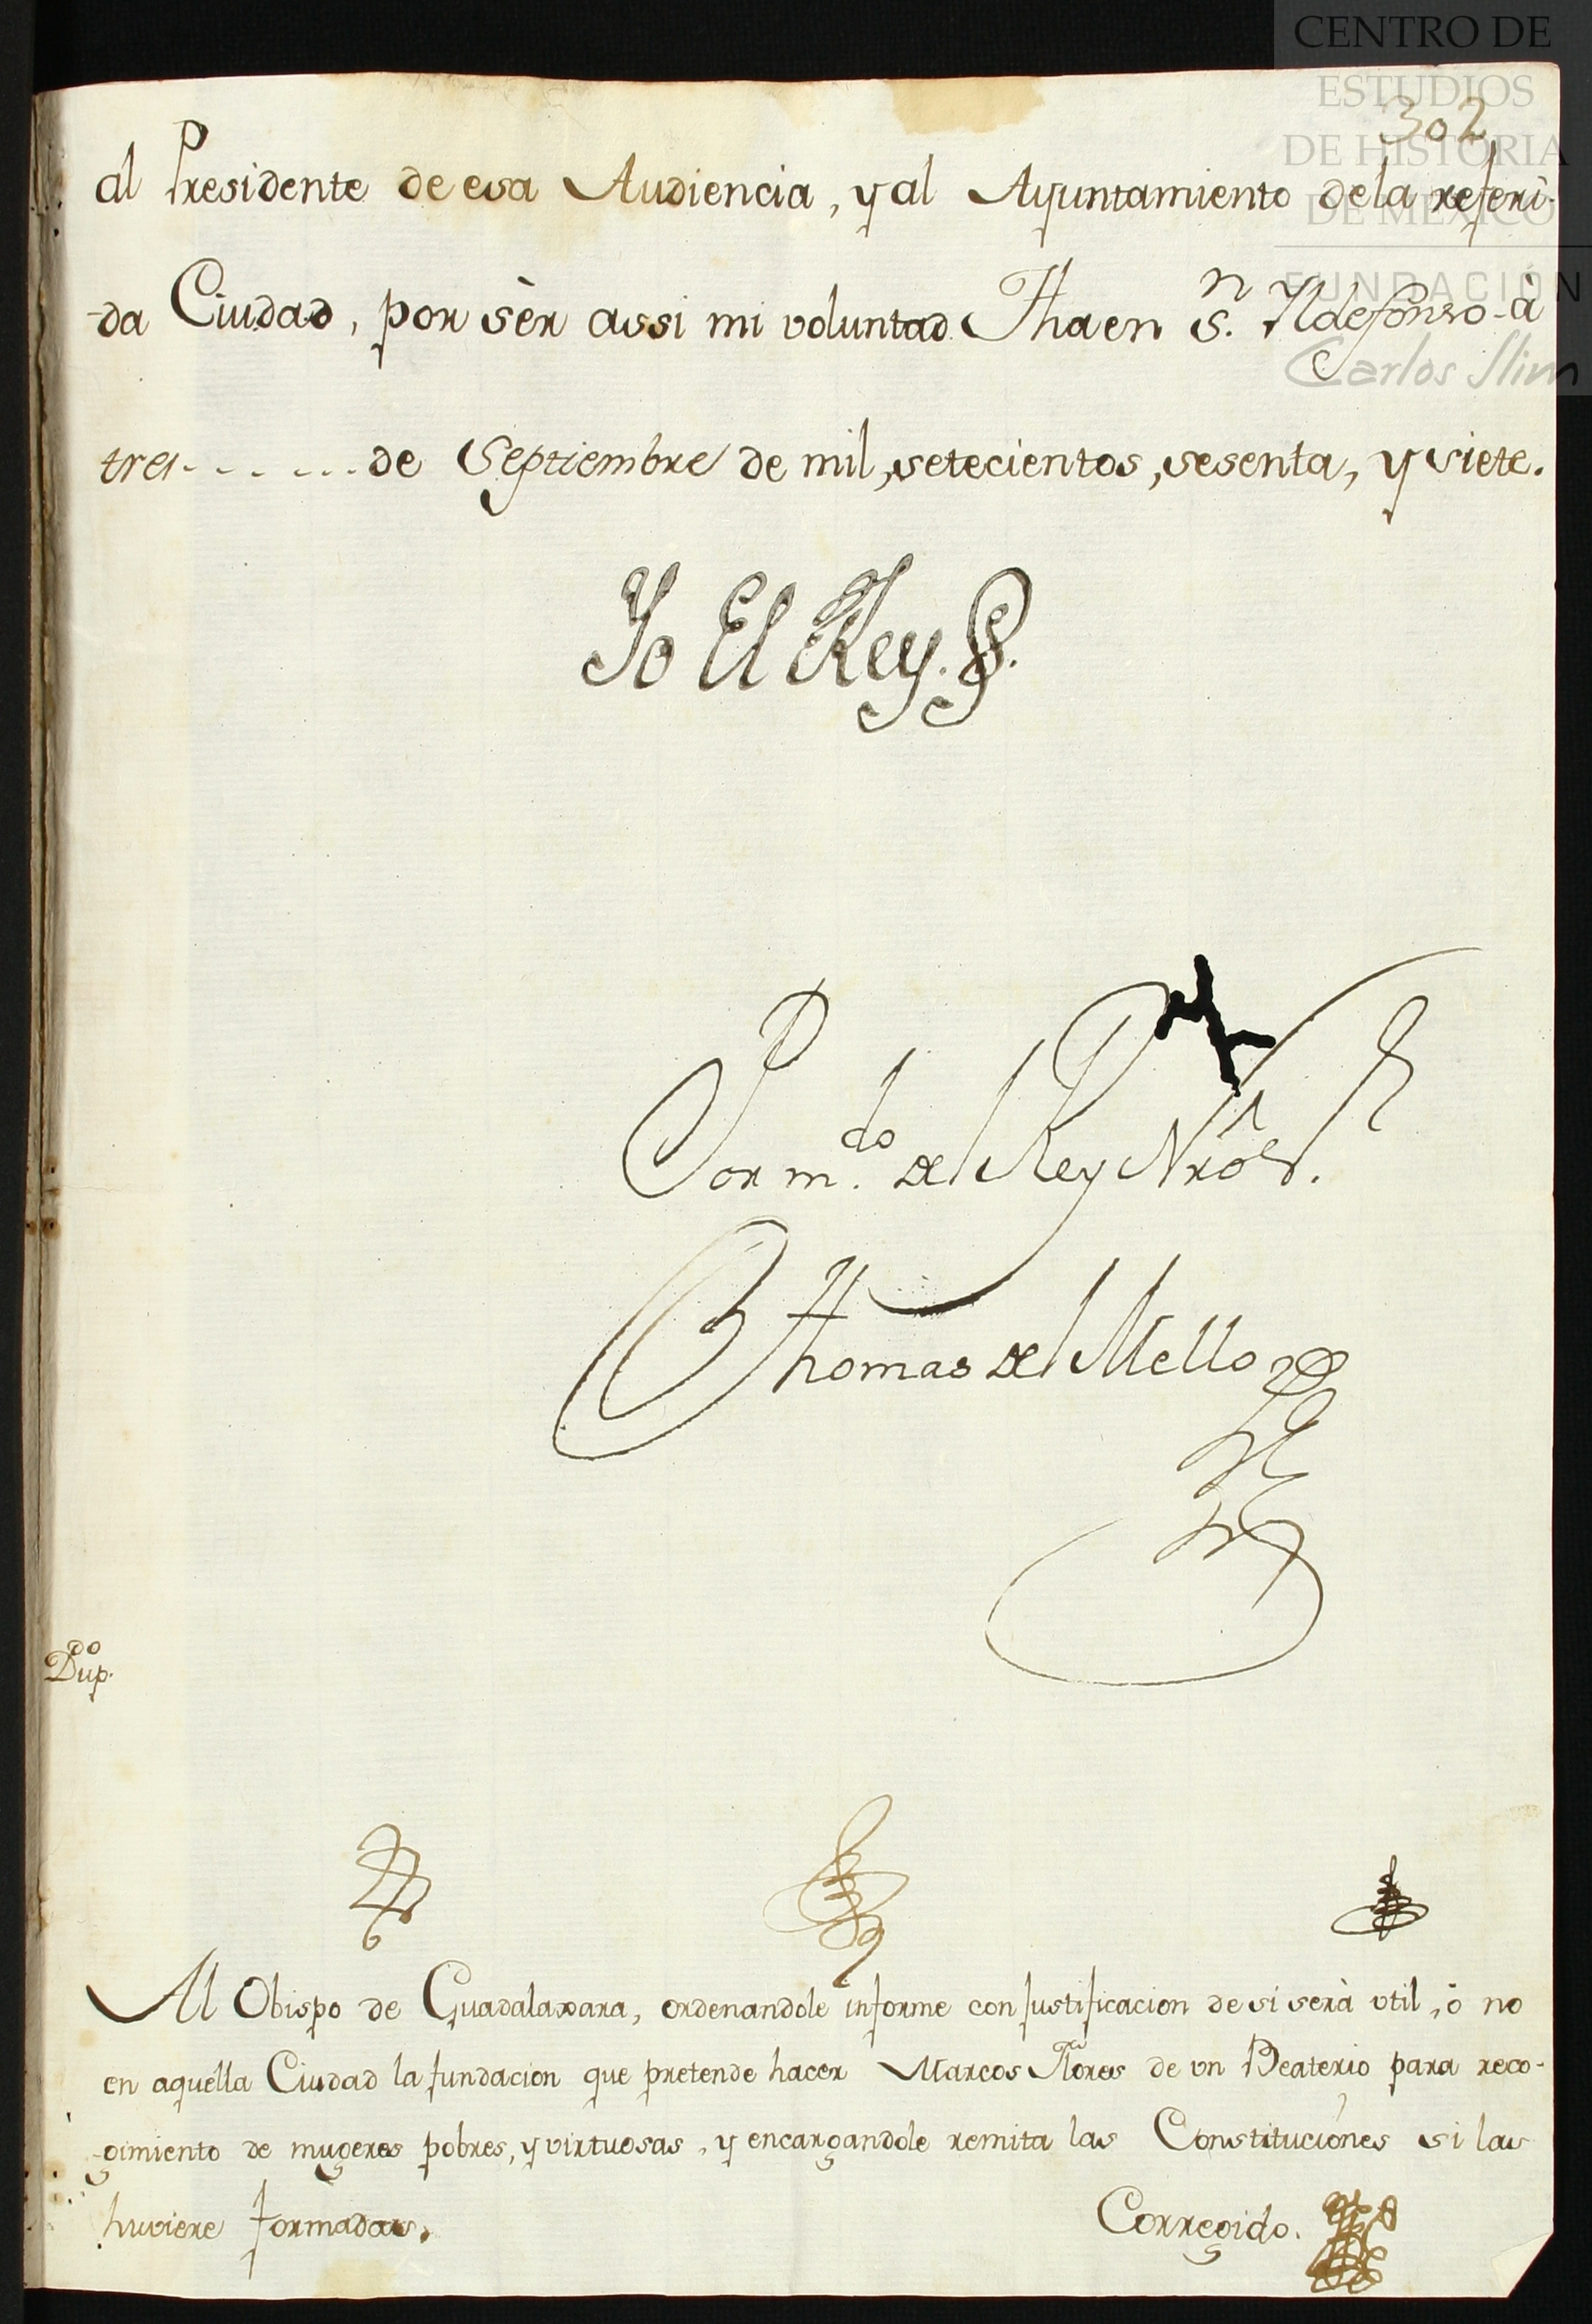 CENTRO DE
ESTUDIOS
DE HISTORIA
DE MEXICO
FUNDACIÓN
Carlos Slim
302
al Presidente de esa Audiencia, y al Ayuntamiento de la referi-
-da Ciudad, por sèr assi mi voluntad Fha en S.n Yldefonso à
tres - - - - - - de Septiembre de mil, setecientos, sesenta, y siete.
Yo El Rey.
Por m.do del Rey Nrô S.r
Thomas del Mello
Dup.do
Al Obispo de Guadalaxara, ordenandole informe con justificacion de si serà vtil, ò no
en aquella Ciudad la fundacion que pretende hacer Marcos Flores de vn Beaterio para reco-
-gimiento de mugeres pobres, y virtuosas, y encargandole remita las Constituciones si las
huviere formadas.
Corregido.